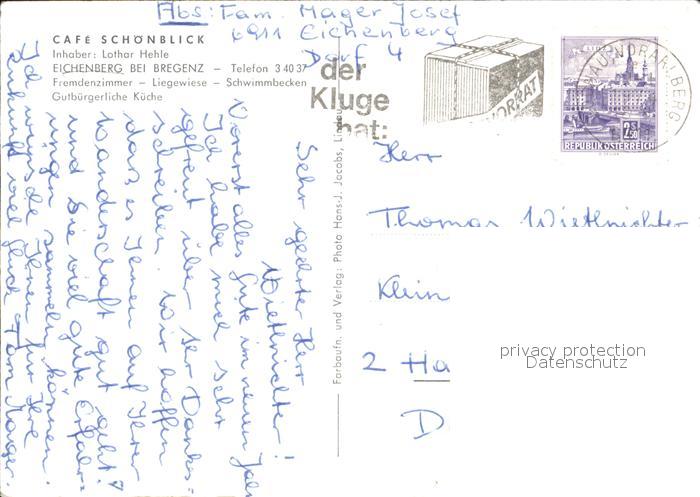 Abs: Fam. Mager Josef
6911 Eichenberg
Dorf 4
CAFÉ SCHÖNBLICK
Inhaber: Lothar Hehle
EICHENBERG BEI BREGENZ – Telefon 3 40 37
Fremdenzimmer – Liegewiese – Schwimmbecken
Gutbürgerliche Küche
der
Kluge
hat:
VORRAT
LOCHAU, VORARLBERG
2.50
REPUBLIK ÖSTERREICH
Sehr geehrter Herr
Wiethüchter!
Vorerst alles Gute im neuen Jahr
Ich habe mich sehr
gefreut über Ihr Dankes-
schreiben. Wir hoffen
daß es Ihnen auf Ihrer
Wanderschaft gut geht!
und Sie viel gute Erfahr-
ungen sammeln können.
Ich wünsche Ihnen für Ihre
Zukunft viel Glück Fam Mager.
Farbaufn. und Verlag: Photo Hans J. Jacobs, Lindau
Herr
Thomas Wiethüchter
Klein
2 Ha
D
privacy protection
Datenschutz